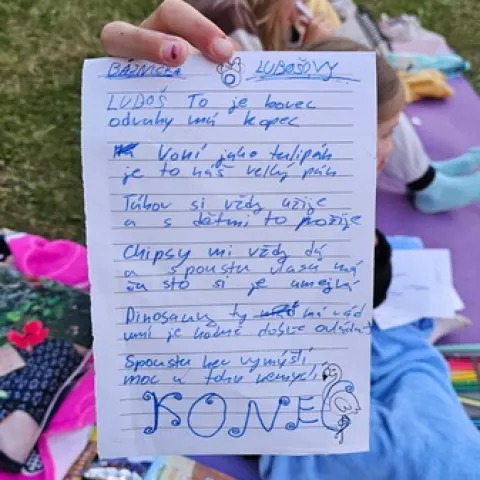 BÁSNIČKA LUBOŠOVY
LUBOŠ To je borec
odvahy má kopec
Voní jako tulipán
je to náš velký pán
Túhov si vždy užije
a s dětmi to prožije
Chipsy mi vždy dá
a spoustu vlasů má
za sto si je umejvá
Dinosaury ty má rád
umí je hodně dobře ovládat
Spoustu her vymýšlí
moc u toho nemyslí
KONEC